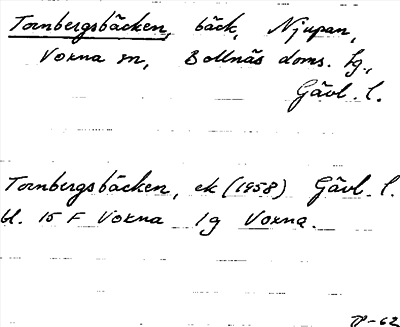 Tornbergsbäcken, bäck, Njupan,
Voxna sn, Bollnäs doms. lg.,
Gävl. l.
Tornbergsbäcken, ek (1958) Gävl. l.
bl. 15 F Voxna lg Voxna.
-62